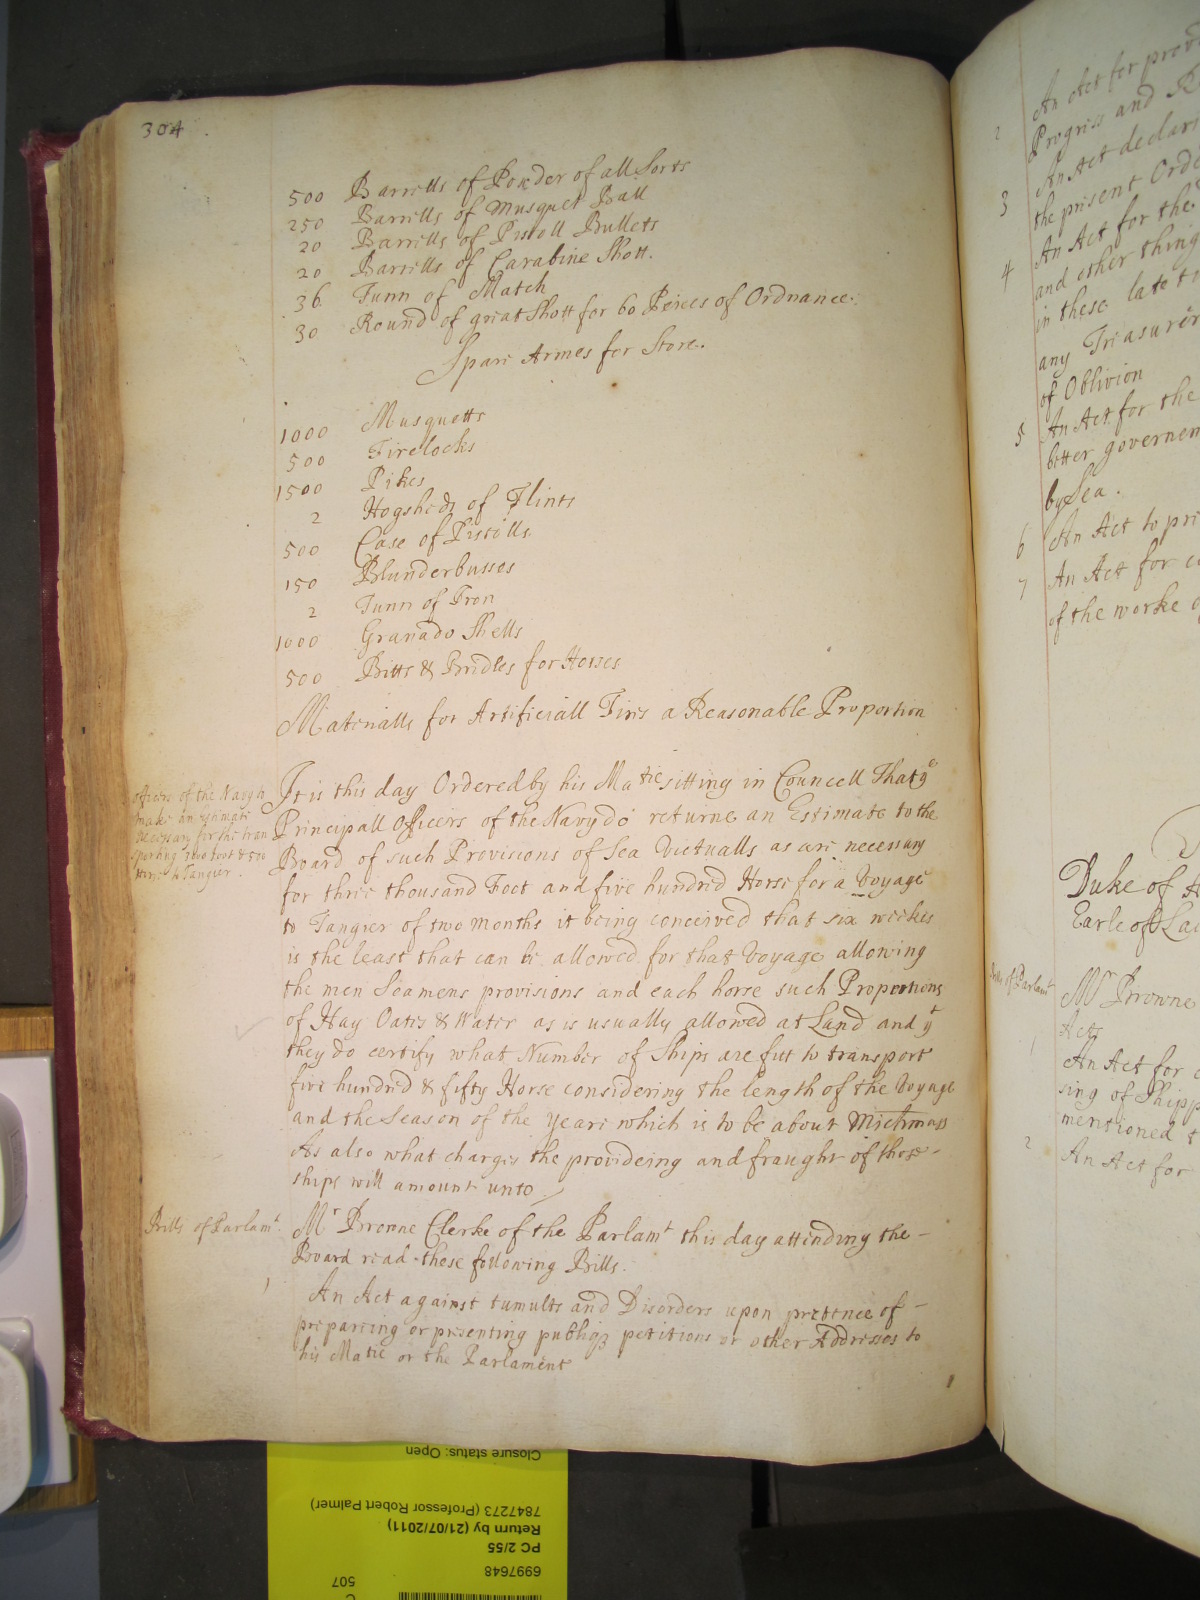 304
500 Barrells of Powder of all Sorts
250 Barrells of Musquet Ball
20 Barrells of Pistoll Bullets
20 Barrells of Carabine Shott.
36 Tunn of Match
30 Round of great Shott for 60 Peices of Ordnance.
Spare Armes for Store.
1000 Musquetts
500 Firelocks
1500 Pikes
2 Hogsheds of Flints
500 Case of Pistolls
150 Blunderbusses
2 Tunn of Iron
1000 Granado Shells
500 Bitts & Bridles for Horses
Materialls for Artificiall Fires a Reasonable Proportion
officers of the Navy to
make an Estimate
necessary for the tran
sporting 3000 foot & 500
horse to Tangier.
It is this day Ordered by his Matie sitting in Councell That ye
Principall Officers of the Navy do returne an Estimate to the
Board of such Provisions of Sea Victualls as are necessary
for three thousand Foot and five hundred Horse for a Voyage
to Tangier of two months it being conceived that six weekes
is the least that can be allowed for that Voyage allowing
the men Seamens provisions and each horse such Proportions
of Hay Oates & Water as is usually allowed at Land and yt
they do certify what Number of Ships are fitt to transport
five hundred & fifty Horse considering the length of the Voyage
and the Season of the yeare which is to be about Michmass
As also what charges the provideing and fraught of those -
ships will amount unto
Bills of Parlamt.
Mr Browne Clerke of the Parlamt this day attending the -
Board read these following Bills.
1 An Act against tumults and Disorders upon pretence of -
prepareing or presenting publiq petitions or other Addresses to
his Matie or the Parlament
2 An Act for
Progress and
3 An Act declar
the present Ord
4 An Act for the
and other thing
in these late t
any Treasurer
of Oblivion
5 An Act for the
better governem
by Sea.
6 An Act to pr
7 An Act for c
of the worke
Duke of
Earle of La
Bills of Parlamt
Mr Browne
Acts
1 An Act for
sing of Shipp
mentioned t
2 An Act for
Closure status: Open
7847273 (Professor Robert Palmer)
Return by (21/07/2011)
PC 2/55
6997648
507